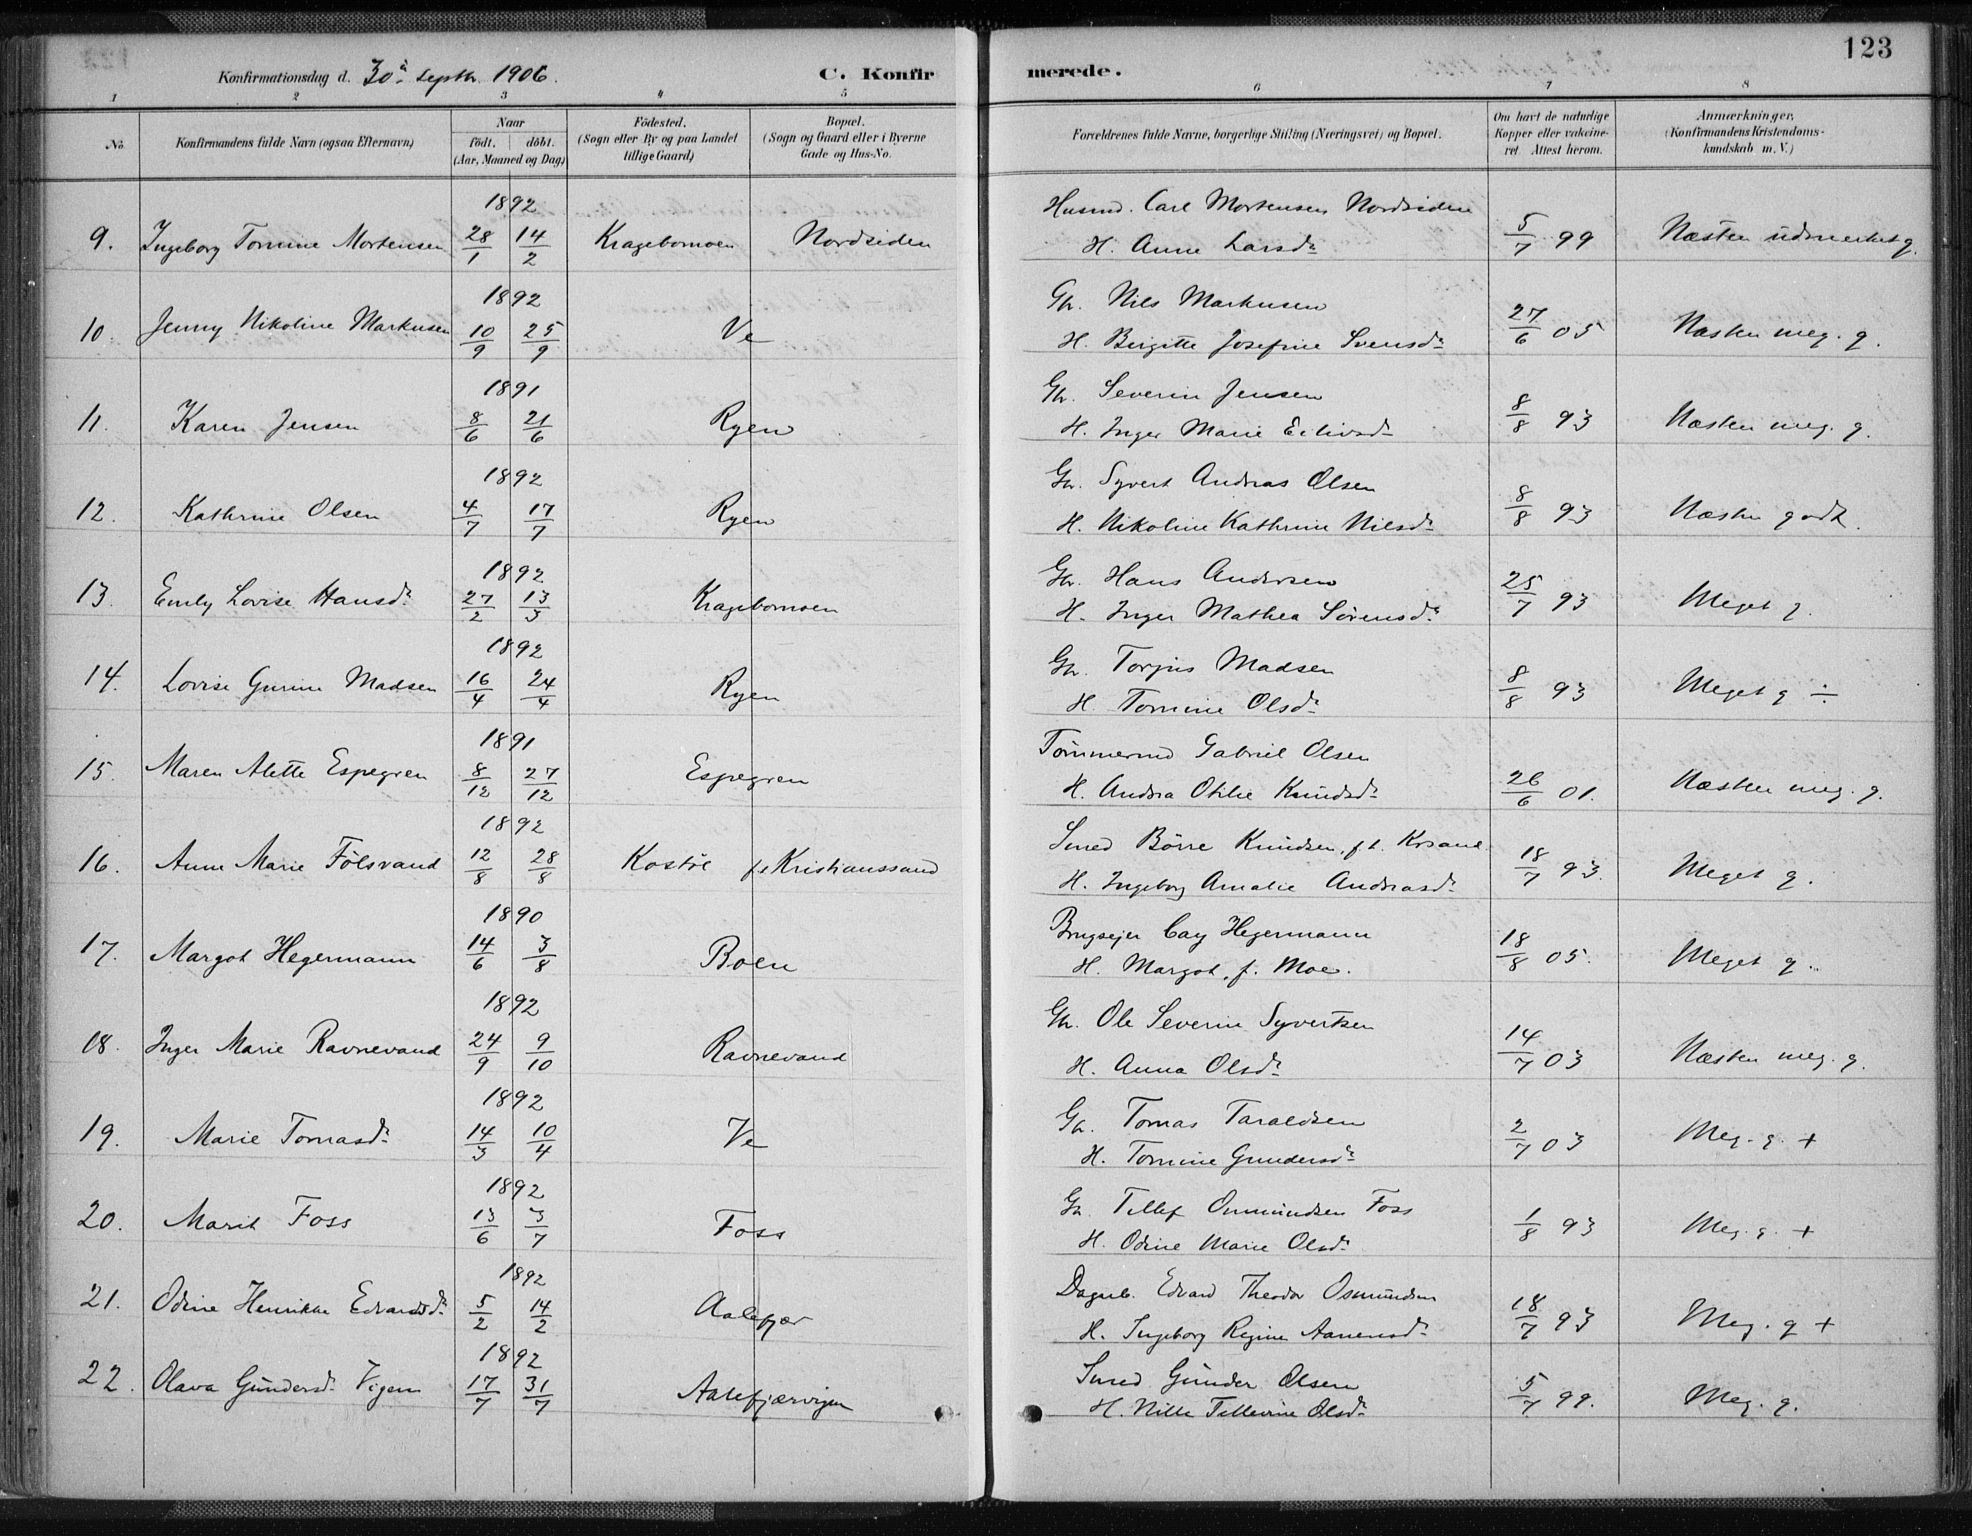 123
Konfirmationsdag d. 30te Septbr. 1906.
C. Konfirmerede.
1 2 3 4 5 6 7 8
No.
Konfirmandens fulde Navn (ogsaa Efternavn)
Naar
födt. döbt.
(Aar, Maaned og Dag)
Födested.
(Sogn eller By og paa Landet tillige Gaard)
Bopæl.
(Sogn og Gaard eller i Byerne Gade og Hus-No.
Forældrenes fulde Navne, borgerlige Stilling (Næringsvei) og Bopæl.
Om havt de naturlige Kopper eller vakcineret. Attest herom.
Anmærkninger.
(Konfirmandens Kristendomskundskab m. V.)
1892
9. Ingeborg Tomine Mortensen 28/1 14/2 Kragebomoen Nordsiden
Husmd. Carl Mortensen Nordsiden
H. Anne Larsdr. 5/7 99 Næsten udmerket g.
1892
10. Jenny Nikoline Markusen 10/9 25/9 Ve
Gbr. Nils Markusen
H. Birgitte Josefine Svensdr. 27/6 05 Næsten meg. g.
1891
11. Karen Jensen 8/6 21/6 Ryen
Gbr. Severin Jensen
H. Inger Marie Eilivsdr. 8/8 93 Næsten meg. g.
1892
12. Kathrine Olsen 4/7 17/7 Ryen
Gbr. Syvert Andreas Olsen
H. Nikoline Kathrine Nilsdr. 8/8 93 Næsten godt.
1892
13. Emly Lovise Hansdr. 27/2 13/3 Kragebomoen
Gbr. Hans Andersen
H. Inger Mathea Sörensdr. 25/7 93 Meget g.
1892
14. Lovise Gurine Madsen 16/4 24/4 Ryen
Gbr. Torjus Madsen
H. Tomine Olsdr. 8/8 93 Meget g ÷
1891
15. Maren Alette Espegren 8/12 27/12 Espegren
Tömmermd Gabriel Olsen
H. Andrea Otilie Knudsdr. 26/6 01. Næsten meg. g.
1892
16. Anne Marie Fölsvand 12/8 28/8 Kostöl f. t. Kristianssand
Smed Börre Knudsen, f. t. Krsand.
H. Ingeborg Amalie Andreasdr. 18/7 93. Meget g.
1890
17. Margot Hegermann 14/6 3/8 Boen
Brugsejer Cay Hegermann
H. Margot, f. Moe. 18/8 05. Meget g.
1892
18. Inger Marie Ravnevand 24/9 9/10 Ravnevand
Gbr. Ole Severin Syvertsen
H. Anna Olsdr. 14/7 03 Næsten meg. g.
1892
19. Marie Tomasdr. 14/3 10/4 Ve
Gbr. Tomas Taraldsen
H. Tomine Gundersdr. 2/7 03 Meg. g. +
1892
20. Marit Foss 13/6 3/7 Foss
Gbr. Tellef Omundsen Foss
H. Odine Marie Olsdr. 1/8 93 Meg. g. +
1892
21. Odine Henrikke Edvardsdr. 5/2 14/2 Aalefjær
Dagarb. Edvard Theodor Osmundsen
H. Ingeborg Regine Aanensdr. 18/7 93 Meg. g +
1892
22. Olava Gundersdr. Vigen 17/7 31/7 Aalefjærvigen
Smed Gunder Olsen
H. Nille Tellevine Olsdr. 5/7 99. Meg. g.